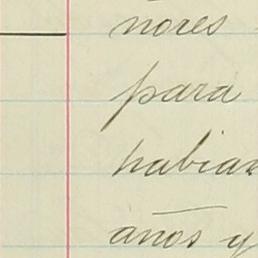 nores
para
habian
años y